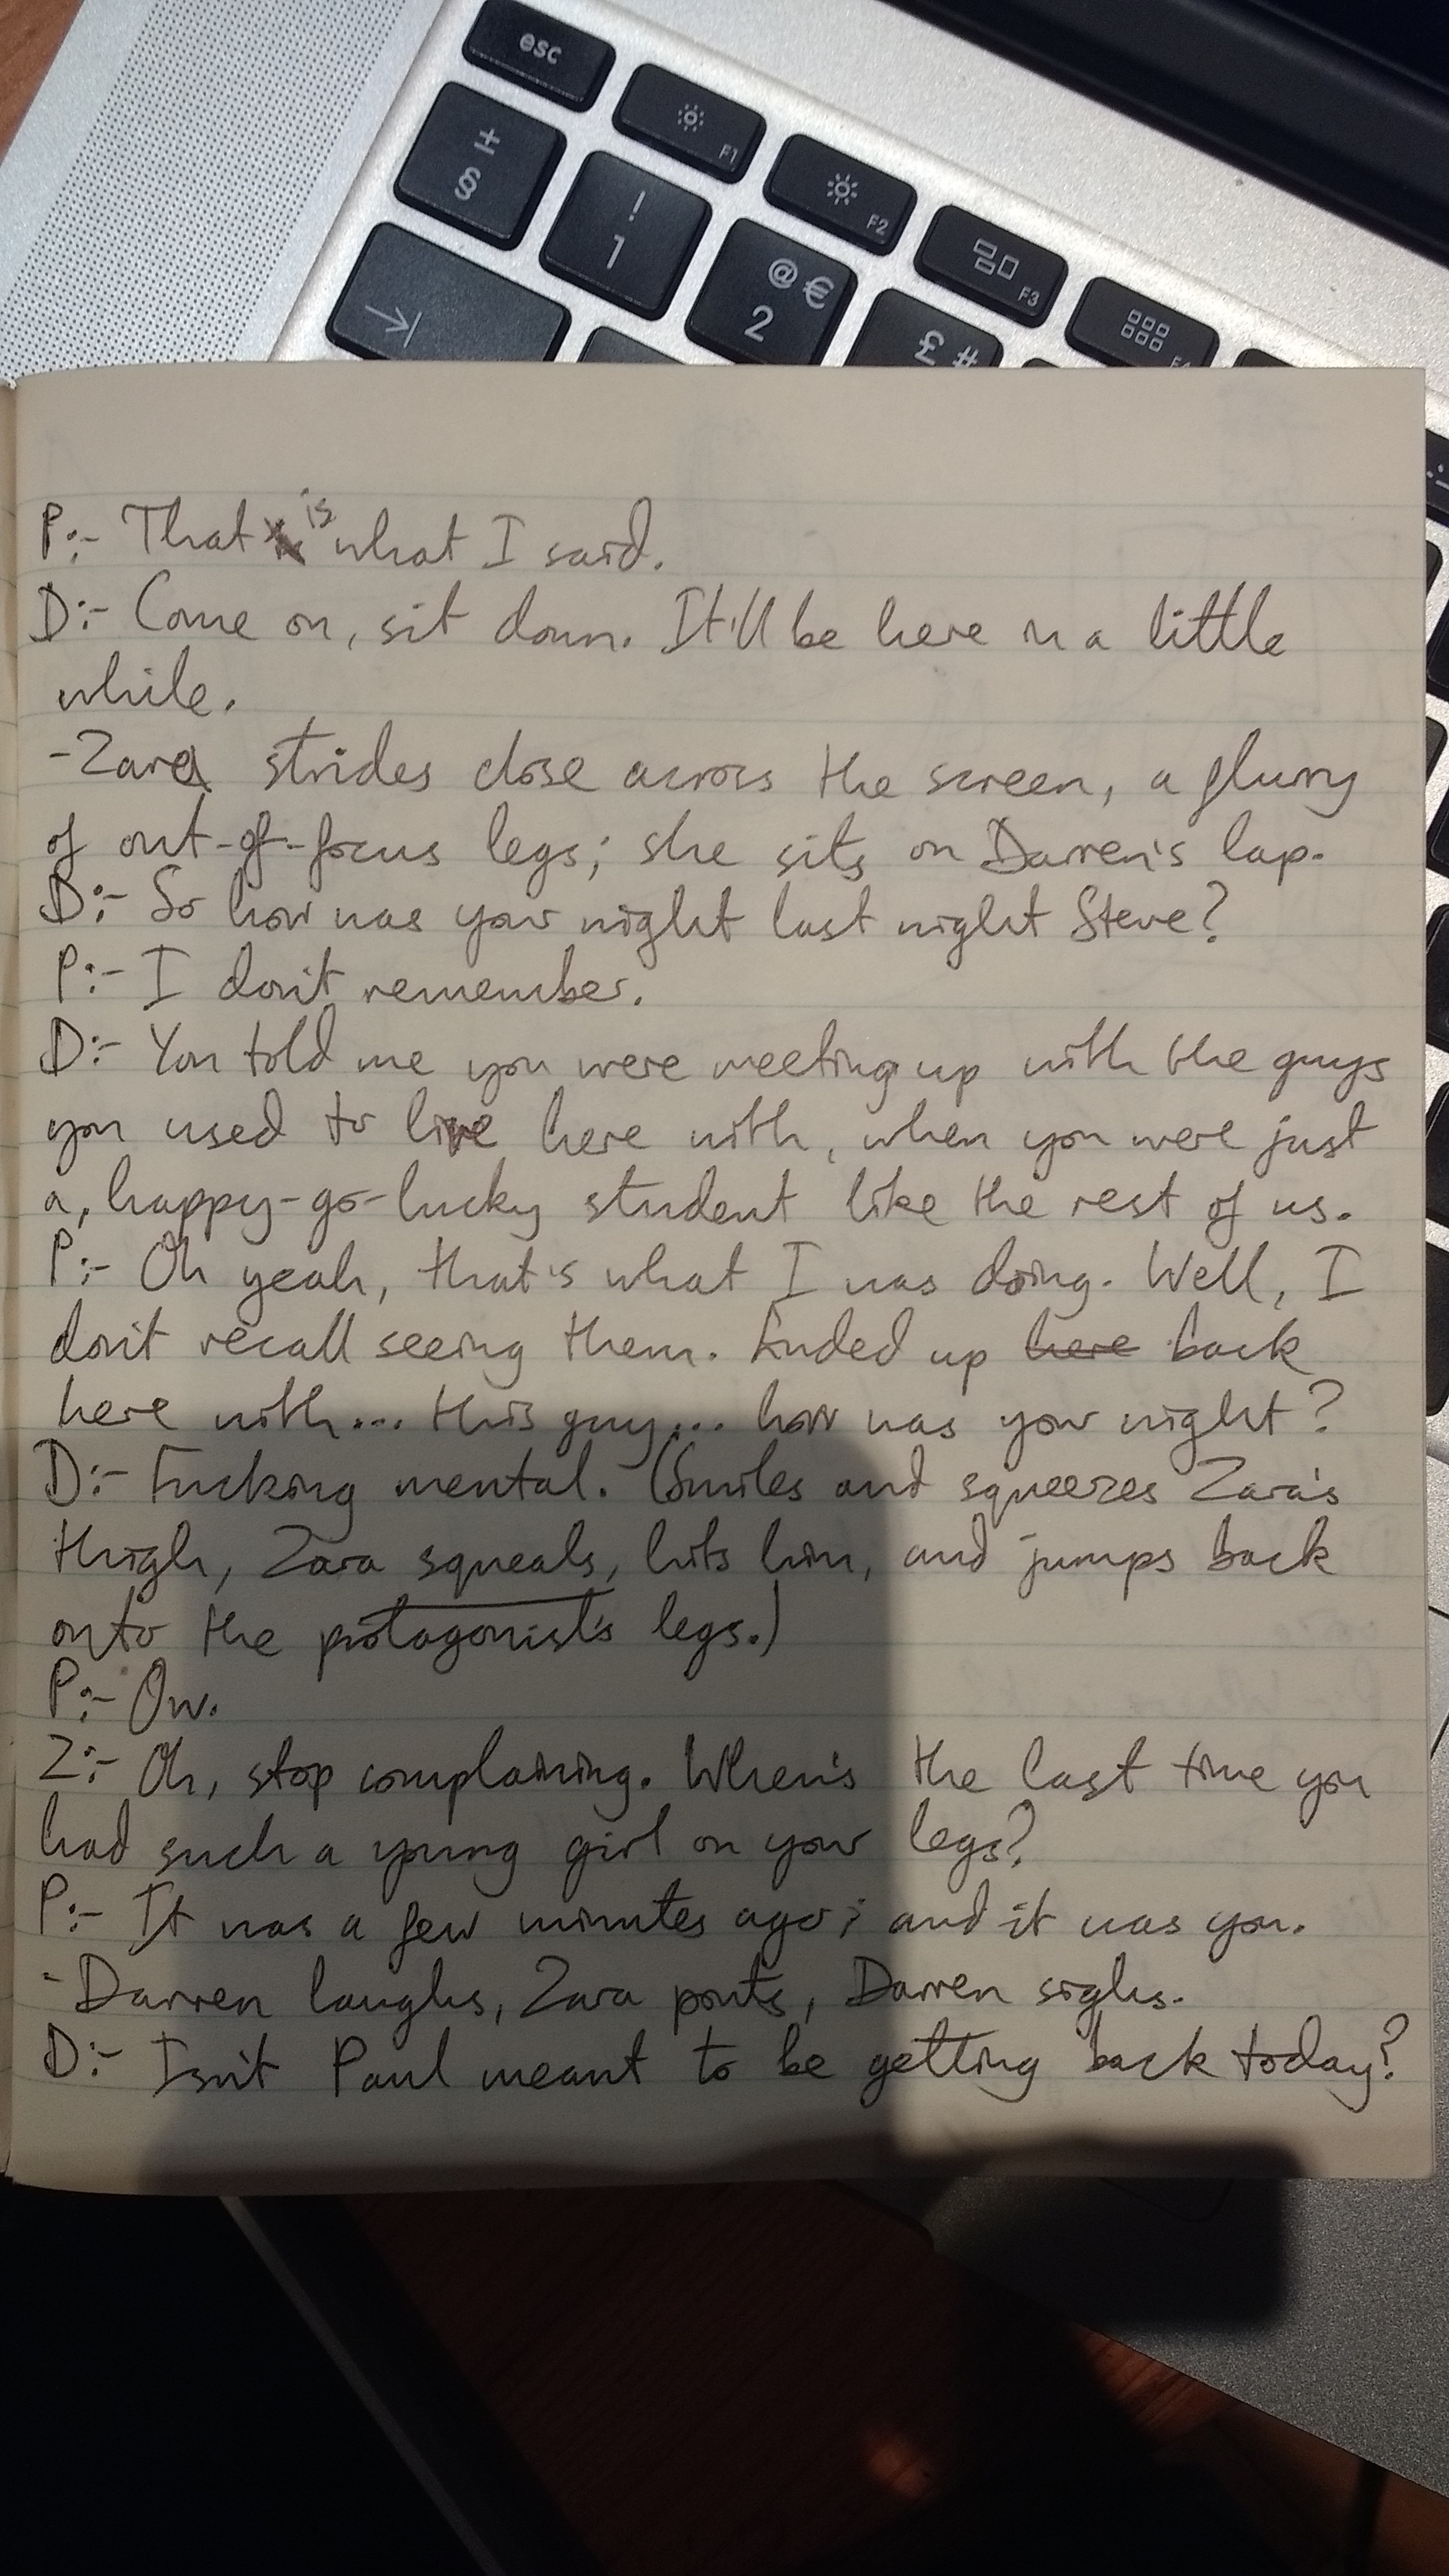 esc
F1
F2
F3
±
§
!
1
@ €
2
£ #
P:- That is what I said.
D:- Come on, sit down. It'll be here in a little
while.
-Zara strides close across the screen, a flurry
of out-of-focus legs; she sits on Darren's lap.
D:- So how was your night last night Steve?
P:- I don't remember.
D:- You told me you were meeting up with the guys
you used to live here with, when you were just
a, happy-go-lucky student like the rest of us.
P:- Oh yeah, that's what I was doing. Well, I
don't recall seeing them. Ended up here back
here with... this guy... how was your night?
D:- Fucking mental. (Smiles and squeezes Zara's
thigh, Zara squeals, hits him, and jumps back
onto the protagonist's legs.)
P:- Ow.
Z:- Oh, stop complaining. When's the last time you
had such a young girl on your legs?
P:- It was a few minutes ago; and it was you.
-Darren laughs, Zara pouts, Darren sighs.
D:- Isn't Paul meant to be getting back today?